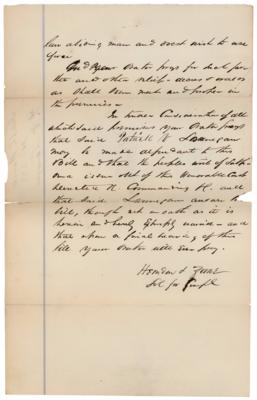 law abiding man and dont wish to use
force
And your Orator prays for such fur
ther and other relief - decrees & orders
as shall seem meet and proper in
the premises -
In tender Consideration of all
which said premises your Orator prays
that said Patrick W Lannigan
may be made defendant to this
Bill and that the peoples writ of
issue out of this Honorable Court
Commanding &c and
that said Lannigan answer the
bill, though not on oath as it is
hereby waived - and
that upon a final hearing of this
bill your Orator will ever pray.
Sol for Compl